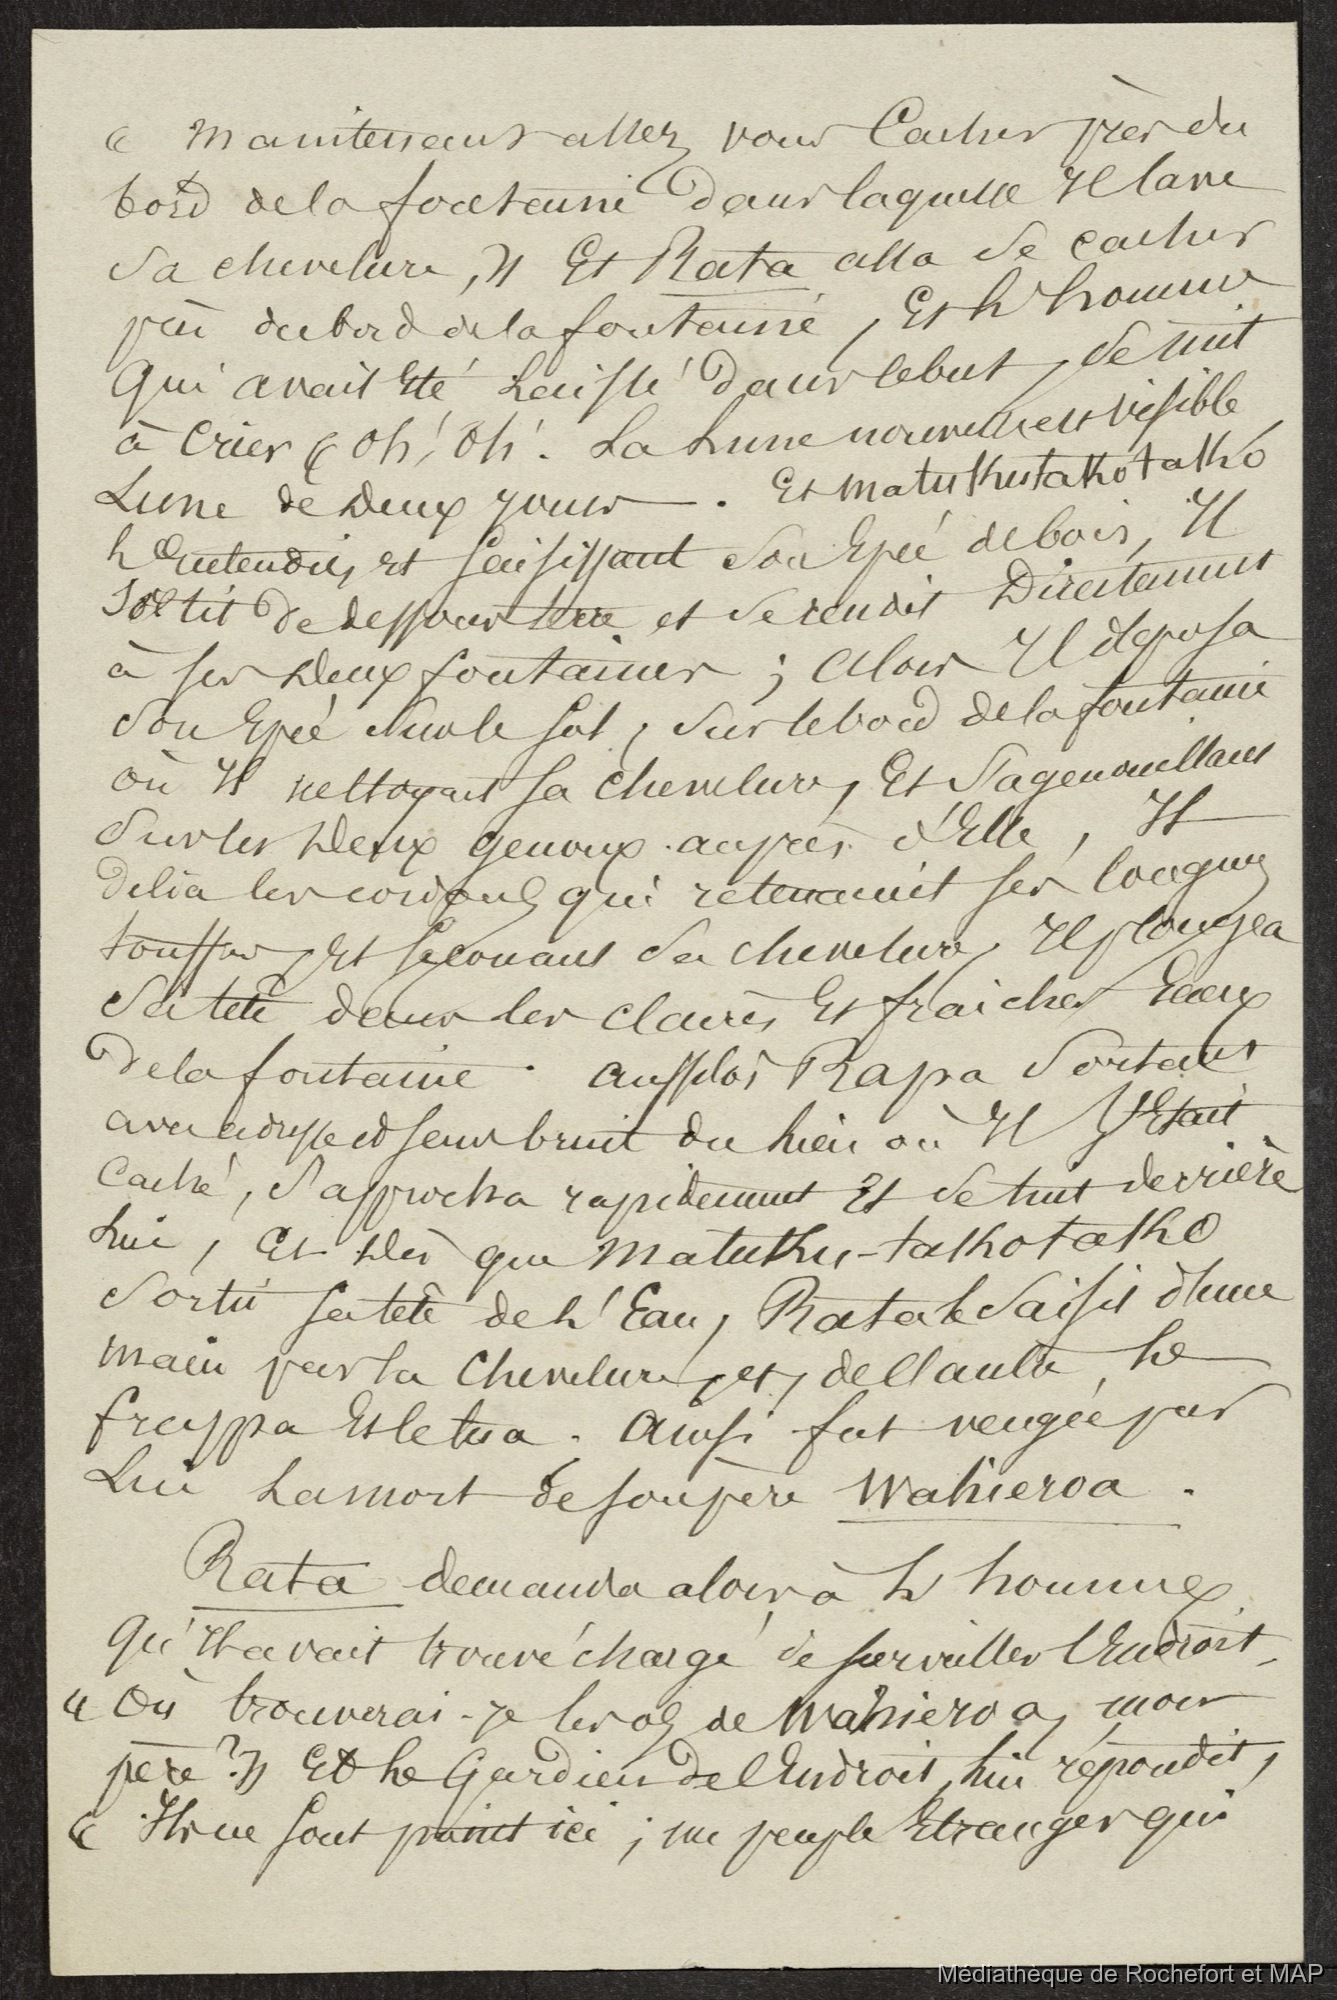 « Maintenant allez vous Cacher près du
bord de la fontaine dans laquelle Il lave
Sa chevelure, » Et Rata alla Se cacher
près du bord de la fontaine, Et L'homme
Qui avait Eté Laissé dans le but, Se mit
à Crier « Oh! Oh! La Lune nouvelle est Visible
Lune de Deux Jours. Et Matuku takotako
L'Entendit, et saisissant Son Epée de bois, Il
Sortit de dessous terre et Se rendit Directement
à ses Deux fontaines ; Alors Il déposa
Son Epée Sur le sol, Sur le bord de la fontaine
où Il nettoyait sa Chevelure, Et S'agenouillant
Sur les Deux genoux auprès d'Elle, Il
Délia les cordons qui retenaient ses longues
touffes, Et secouant Sa chevelure, Il plongea
Sa tête dans les claires Et fraiches Eaux
de la fontaine. Aussitôt Rapa Sortant
avec adresse et sans bruit du Lieu où Il S'Etait
Caché, S'approcha rapidement Et Se tint derrière
Lui, Et Dès que Matuku-takotako
Sortit sa tête de L'Eau, Rata le Saisit d'une
main par la Chevelure, et, de l'autre, Le
frappa Et le tua. Ainsi fut vengée par
Lui La mort de son père Wahieroa.
Rata demanda alors à L'homme
Qu'Il avait trouvé chargé de surveiller l'Endroit,
« Où trouverai-je les os de Wahieroa, mon
père? » Et Le Gardien de l'Endroit, Lui répondit,
« Ils ne sont point ici ; un peuple Etranger qui
Médiathèque de Rochefort et MAP